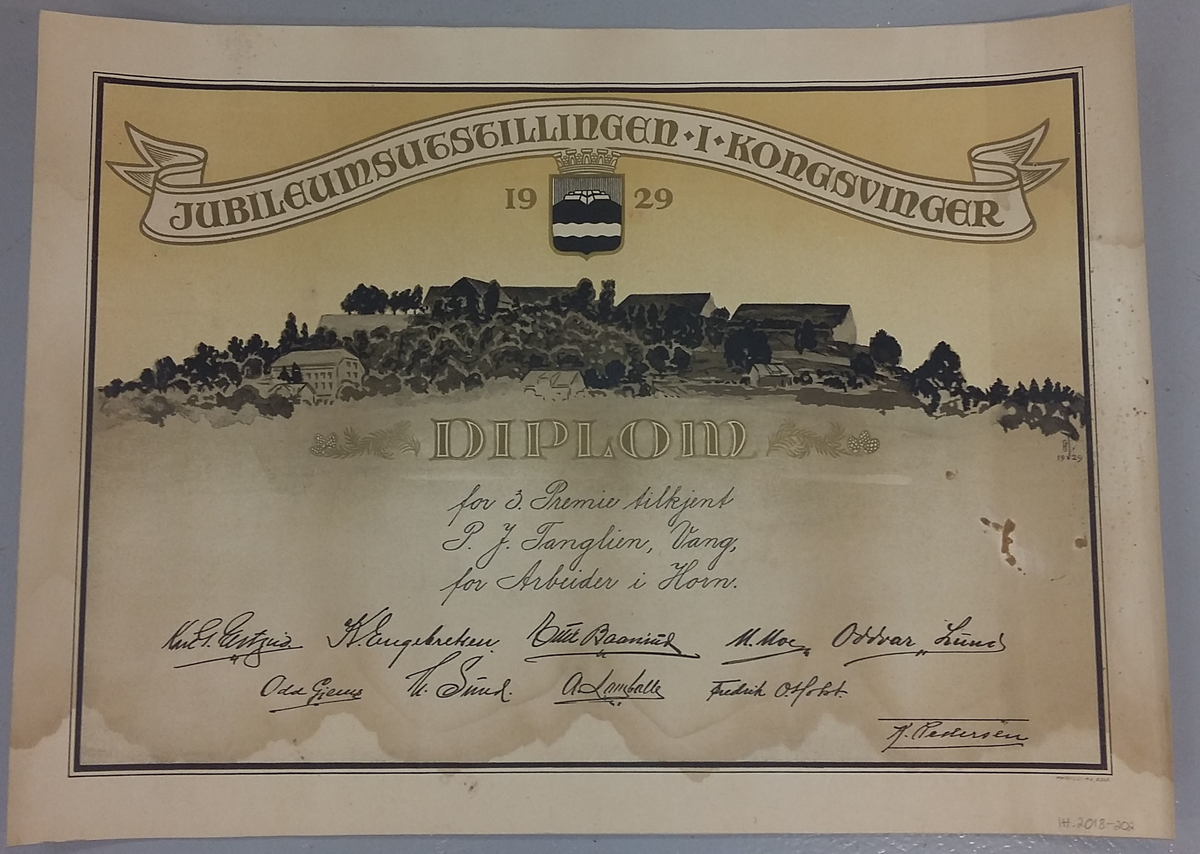 JUBILEUMSUTSTILLINGEN · I · KONGSVINGER
19 29
DIPLOM
1929
for 3. Premie tilkjent
P. J. Tanglien, Vang,
for Arbeider i Horn.
K. Engebretsen. Baanrud M. Moe Oddvar Lund
Odd Gjems H. Sund. A. Lamballe Fredrik O. Holst.
K. Pedersen
HH-2018-202